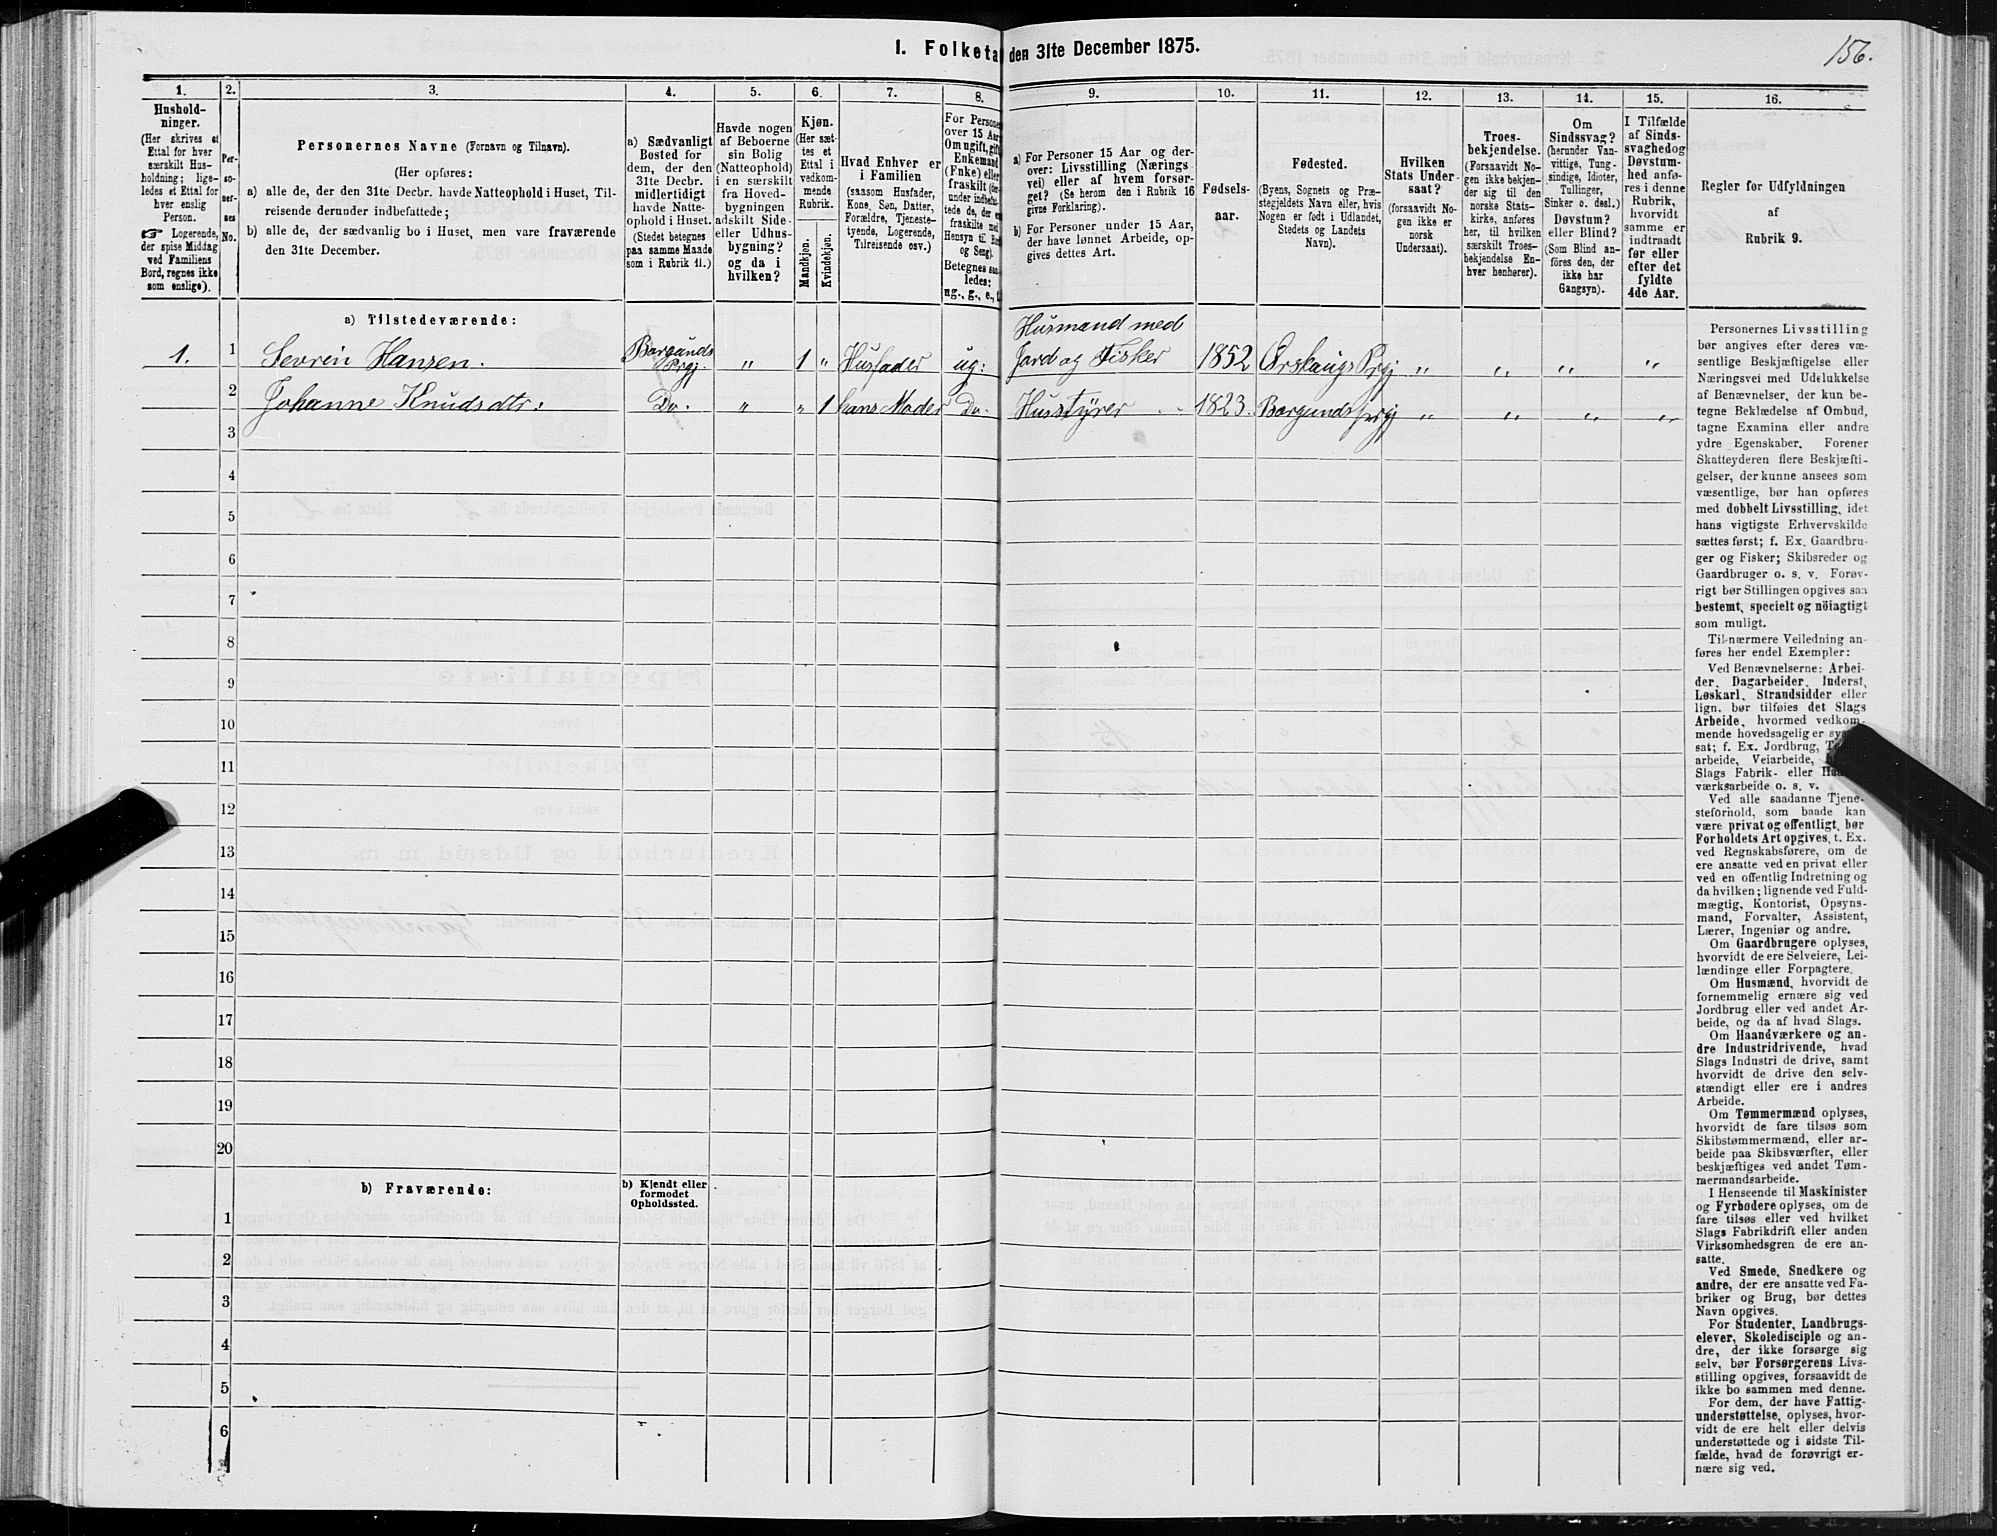 156.
I. Folketa
den 31te December 1875.
1. 2. 3. 4. 5. 6. 7. 8. 9. 10. 11. 12. 13. 14. 15. 16.
Hushold-
ninger.
(Her skrives et
Ettal for hver
særskilt Hus-
holdning; lige-
ledes et Ettal for
hver enslig
Person.
☞ Logerende,
der spise Middag
ved Familiens
Bord, regnes ikke
som enslige).
Per-
so-
ner-
nes
No.
Personernes Navne (Fornavn og Tilnavn).
(Her opføres:
a) alle de, der den 31te Decbr. havde Natteophold i Huset, Til-
reisende derunder indbefattede;
b) alle de, der sædvanlig bo i Huset, men vare fraværende
den 31te December.
a) Sædvanligt
Bosted for
dem, der den
31te Decbr.
midlertidigt
havde Natte-
ophold i Huset.
(Stedet betegnes
paa samme Maade
som i Rubrik 11.)
Havde nogen
af Beboerne
sin Bolig
(Natteophold)
i en særskilt
fra Hoved-
bygningen
adskilt Side-
eller Udhus-
bygning?
og da i
hvilken?
Kjøn.
(Her sæt-
tes et
Ettal i
vedkom-
mende
Rubrik.
Mandkjøn.
Kvindekjøn.
Hvad Enhver er
i Familien
(saasom Husfader,
Kone, Søn, Datter,
Forældre, Tjeneste-
tyende, Logerende,
Tilreisende osv.)
For Persone
over 15 Aar
Om ugift, gift
Enkemand
(Enke) eller
fraskilt (der-
under indbefat-
tede de, der e
fraskilte med
Hensyn til Bo
og Seng).
Betegnes saa
ledes:
ug., g., e., f.
a) For Personer 15 Aar og der-
over: Livsstilling (Nærings-
vei) eller af hvem forsør-
get? (Se herom den i Rubrik 16
givne Forklaring).
b) For Personer under 15 Aar,
der have lønnet Arbeide, op-
gives dettes Art.
Fødsels-
aar.
Fødested.
(Byens, Sognets og Præ-
stegjeldets Navn eller, hvis
Nogen er født i Udlandet,
Stedets og Landets
Navn).
Hvilken
Stats Under-
saat?
(forsaavidt No-
gen ikke er
norsk
Undersaat).
Troes-
bekjendelse.
(Forsaavidt No-
gen ikke bekjen-
der sig til den
norske Stats-
kirke, anføres
her, til hvilken
særskilt Troes-
bekjendelse En-
hver henhører).
Om
Sindssvag?
(herunder Van-
vittige, Tung-
sindige, Idioter,
Tullinger,
Sinker o. desl.)
Døvstum?
eller Blind?
(Som Blind an-
føres den, der
ikke har
Gangsyn).
I Tilfælde
af Sinds-
svaghed og
Døvstum-
hed anfø-
res i denne
Rubrik,
hvorvidt
samme er
indtraadt
før eller
efter det
fyldte
4de Aar.
Regler for Udfyldningen
af
Rubrik 9.
a) Tilstedeværende:
1. 1 Sevrin Hansen. Borgunds Prgj. " 1 " Husfader ug: Husmand med Jord og Fisker 1852 Ørskougs Prgj " " " "
2 Johanne Knudsdtr: Do. " " 1 hans Moder Do. Husstyrer 1823. Borgunds prgj " " " "
3
4
5
6
7
8
9
10
11
12
13
14
15
16
17
18
19
20
b) Fraværende:
b) Kjendt eller
formodet
Opholdssted.
1
2
3
4
5
6
Personernes Livsstilling
bør angives efter deres væ-
sentlige Beskjæftigelse eller
Næringsvei med Udelukkelse
af Benævnelser, der kun be-
tegne Beklædelse af Ombud,
tagne Examina eller andre
ydre Egenskaber. Forener
Skatteyderen flere Beskjæfti-
gelser, der kunne ansees som
væsentlige, bør han opføres
med dobbelt Livsstilling, idet
hans vigtigste Erhvervskilde
sættes først; f. Ex. Gaardbru-
ger og Fisker; Skibsreder og
Gaardbruger o. s. v. Forøv-
rigt bør Stillingen opgives saa
bestemt, specielt og nöiagtigt
som muligt.
Til nærmere Veiledning an-
føres her endel Exempler:
Ved Benævnelserne: Arbei-
der, Dagarbeider, Inderst,
Løskarl, Strandsidder eller
lign. bør tilføies det Slags
Arbeide, hvormed vedkom-
mende hovedsagelig er sys
sat; f. Ex. Jordbrug, T
arbeide, Veiarbeide,
Slags Fabrik- eller Haa
værksarbeide o. s. v.
Ved alle saadanne Tjene-
steforhold, som baade kan
være privat og offentligt, bør
Forholdets Art opgives, t. Ex.
ved Regnskabsførere, om de
ere ansatte ved en privat eller
ved en offentlig Indretning og
da hvilken; lignende ved Fuld-
mægtig, Kontorist, Opsyns-
mand, Forvalter, Assistent,
Lærer, Ingeniør og andre.
Om Gaardbrugere oplyses,
hvorvidt de ere Selveiere, Lei-
lændinge eller Forpagtere.
Om Husmænd, hvorvidt de
fornemmelig ernære sig ved
Jordbrug eller ved andet Ar-
beide, og da af hvad Slags.
Om Haandværkere og an-
dre Industridrivende, hvad
Slags Industri de drive, samt
hvorvidt de drive den selv-
stændigt eller ere i andres
Arbeide.
Om Tømmermænd oplyses,
hvorvidt de fare tilsøs som
Skibstømmermænd, eller ar-
beide paa Skibsværfter, eller
beskjæftiges ved andet Tøm-
mermandsarbeide.
I Henseende til Maskinister
og Fyrbødere oplyses, om de
fare tilsøs eller ved hvilket
Slags Fabrikdrift eller anden
Virksomhedsgren de ere an-
satte.
Ved Smede, Snedkere og
andre, der ere ansatte ved Fa-
briker og Brug, bør dettes
Navn opgives.
For Studenter, Landbrugs-
elever, Skoledisciple og an-
dre, der ikke forsørge sig
selv, bør Forsørgerens Livs-
stilling opgives, forsaavidt de
ikke bo sammen med denne.
For dem, der have Fattig-
understøttelse, oplyses, hvor-
vidt de ere helt eller delvis
understøttede og i sidste Til-
fælde, hvad de forøvrigt er-
nære sig ved.